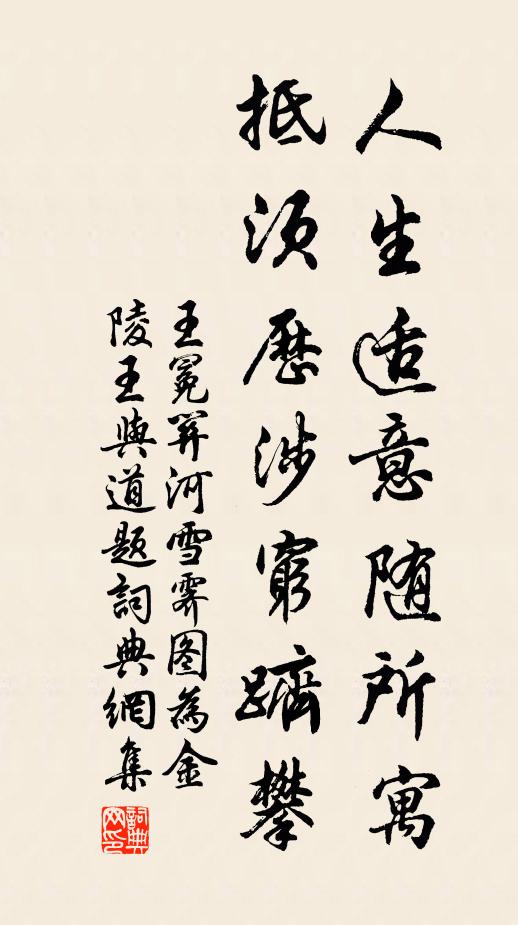 人生适意随所寓
抵须历涉穷跻攀
王冕关河雪霁图为金
陵王与道题词典網集
詞典網印